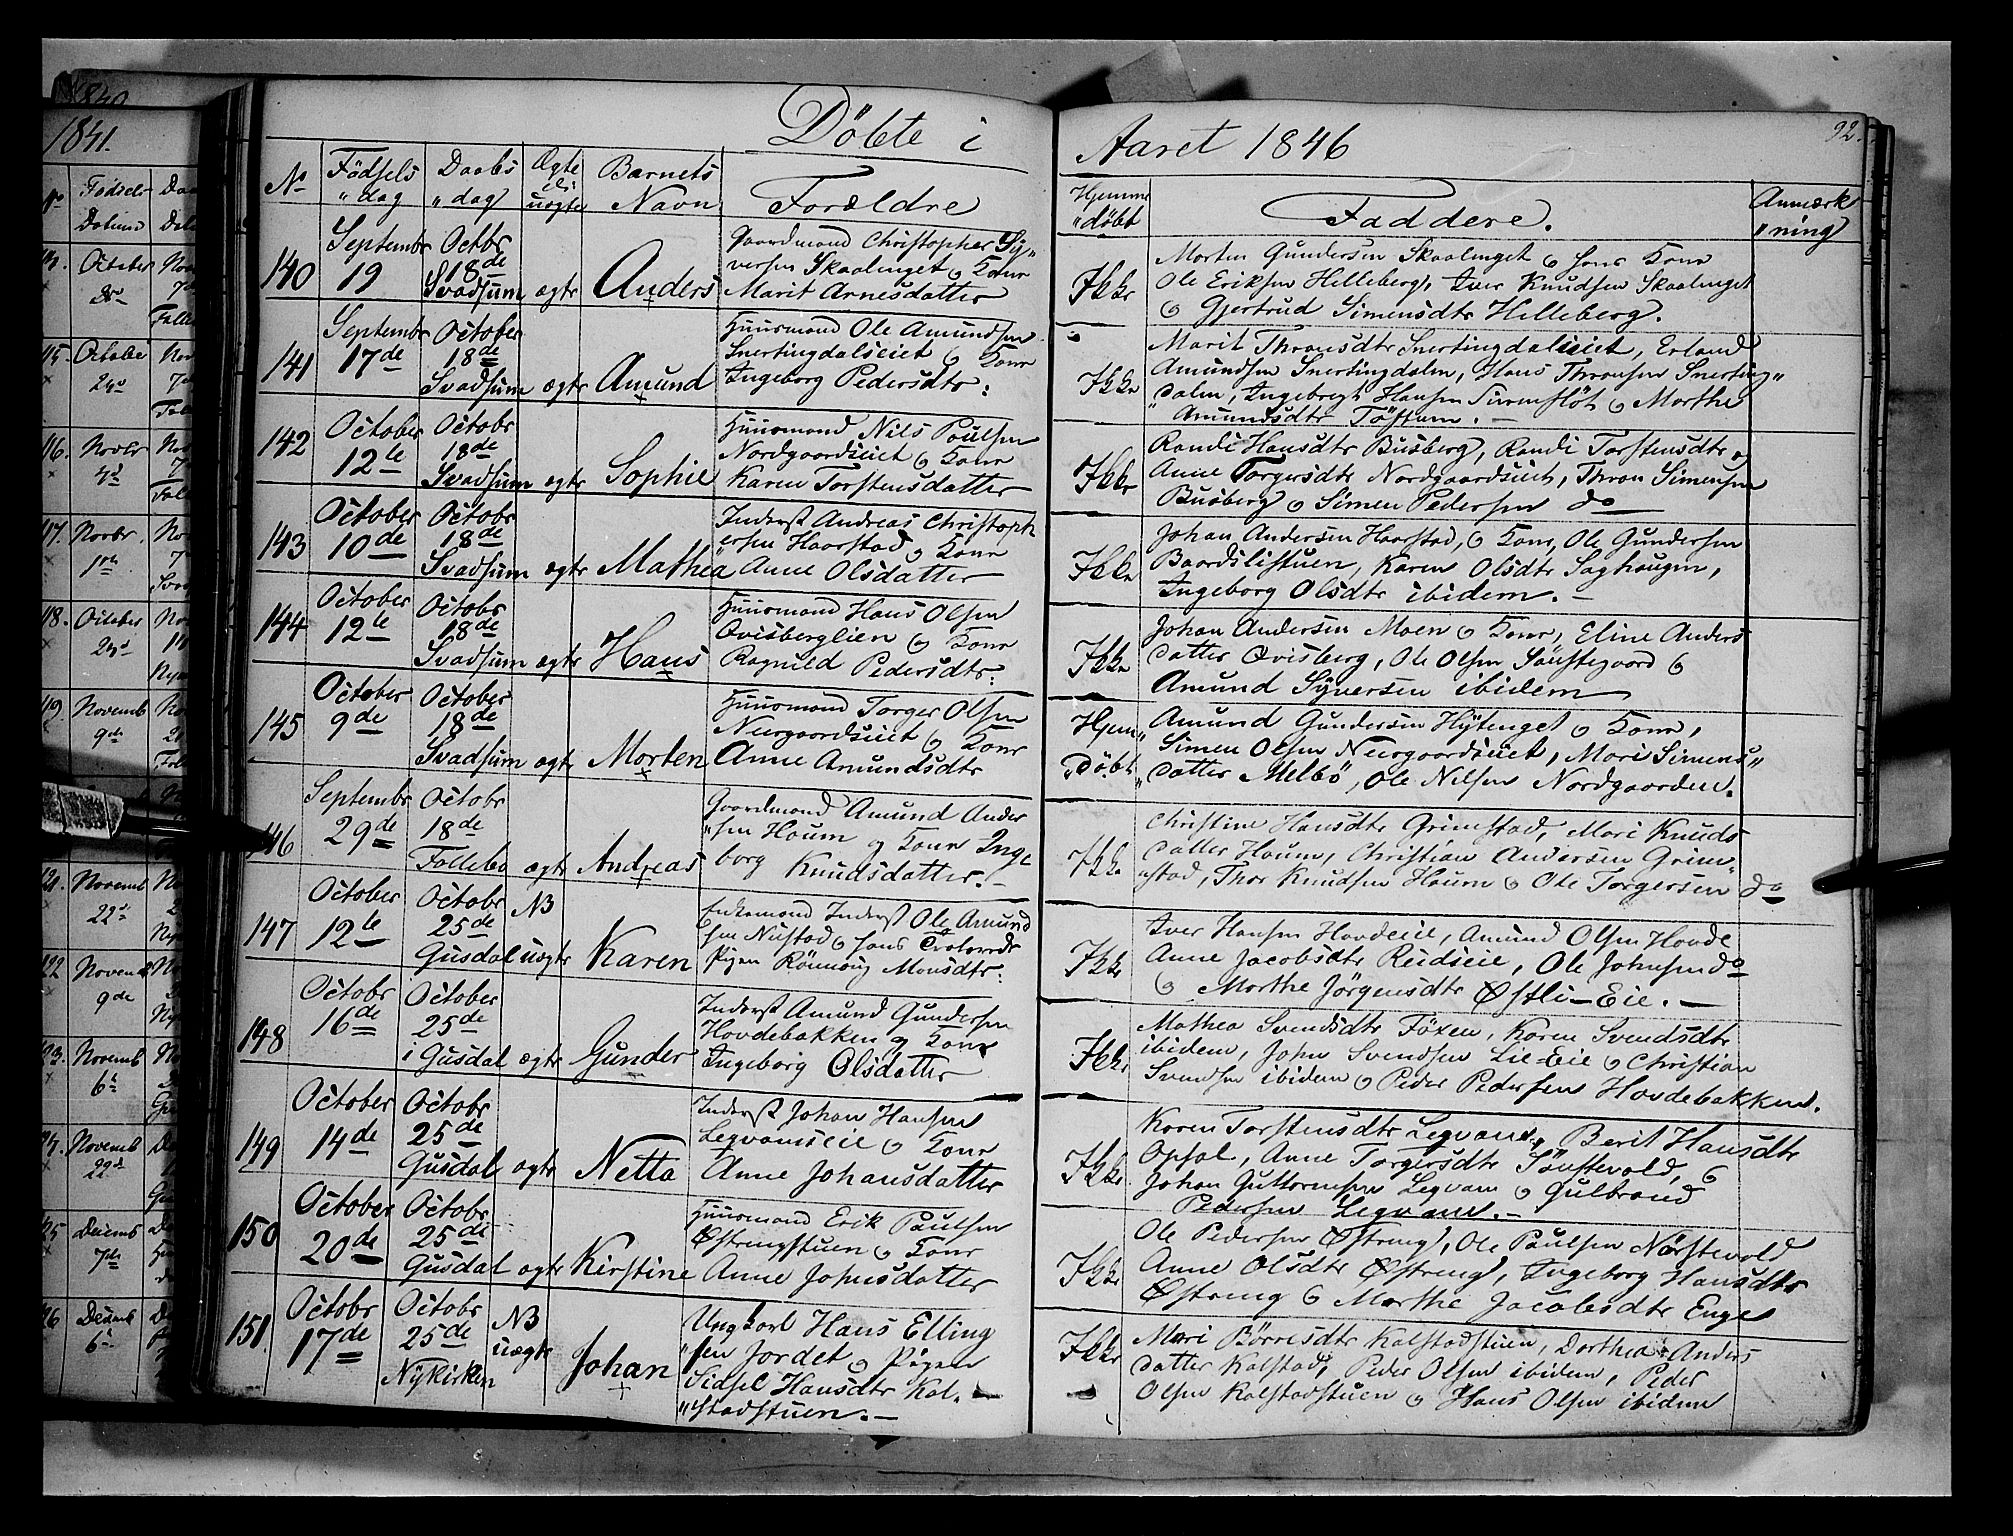 Döbte i
Aaret 1846
92.
No
Födsels
"dag
Daabs
"dag
Ægte
el:
uægte
Barnets
Navn
Forældre
Hjemme
"döbt
Faddere.
Anmærk
"ning
140
Septembr
19
Octbr
18de
Svadsum
ægte
Anders
Gaardmand Christopher Sy"
versen Skaalenget o Kone
Marit Arnesdatter
Ikke
Morten Gundersen Skaalenget o hans Kone
Ole Eriksen Helleberg, Iver Knudsen Skaalenget
o Gjertrud Simensdtr Helleberg.
141
Septembr
17de
October
18de
Svadsum
ægte
Amund
Huusmand Ole Amundsen
Snertingdalseiet o Kone
Ingeborg Pedersdtr:
Ikke
Marit Thronsdtr Snertingdalseiet, Erland
Amundsen Snertingdalen, Hans Thronsen Snerting"
"dalen, Ingebregt Hansen o Marthe
Amundsdtr Töfttum.
142
October
12te
Octobr
18de
Svadsum
ægte
Sophie
Huusmand Nils Poulsen
Nordgaardseiet o Kone
Karen Torstensdatter
Ikke
Randi Hansdtr Busberg, Randi Torstensdtr og
Anne Torgersdtr Nordgaardseiet, Thron Simensen
Busberg o Simen Pedersen do
143
October
10de
Octobr
18de
Svadsum
ægte
Mathea
Inderst Andreas Christoph
ersen Haarstad o Kone
Anne Olsdatter
Ikke
Johan Andersen Haarstad, o Kone, Ole Gundersen
Baardslistuen, Karen Olsdtr Saghaugen,
Ingeborg Olsdtr ibidem.
144
October
12te
Octobr
18de
Svadsum
ægte
Hans
Huusmand Hans Olsen
Qvisberglien o Kone
Ragnild Pedersdtr:
Ikke
Johan Andersen Moen o Kone, Eline Anders
datter Qvisberg, Ole Olsen Sönstegaard o
Amund Syversen ibidem
145
October
9de
October
18de
Svadsum
ægte
Morten
Huusmand Torger Olsen
Neergaardseiet o Kone
Anne Amundsdtr
Hjem"
"döbt
Amund Gundersen Hytenget o Kone,
Simen Olsen Neergaardseiet, Mari Simens"
"datter Melbö, Ole Nilsen Nordgaarden.
146
Septembr
29de
Octobr
18de
Follebo
ægte
Andreas
Gaardmand Amund Ander
"sen Houm og Kone Inge
borg Knudsdatter.
Ikke
Christine Hansdtr Grimstad, Mari Knuds
datter Houm, Christian Andersen Grim"
"stad, Thor Knudsen Houm o Ole Torgersen do
147
October
12te
Octobr
25de
Gusdal
NB
uægte
Karen
Enkemand Inderst Ole Amund
sen Nustad o hans Trolovede
Pigen Rönnoug Monsdtr:
Ikke
Iver Hansen Hovdeeie, Amund Olsen Hovde
Anne Jacobsdtr Reidseie, Ole Johnsen do
o Marthe Jörgensdtr Østli-Eie.
148
Octobr
16de
October
25de
i Gusdal
ægte
Gunder
Inderst Amund Gundersen
Hovdebakken og Kone
Ingeborg Olsdatter
Ikke
Mathea Svendsdtr Föxen, Karen Svendsdtr
ibidem, John Svendsen Lie-Eie o Christian
Svendsen ibidem o Peder Pedersen Hovdebakken.
149
October
14de
Octobr
25de
Gusdal
ægte
Netta
Inderst Johan Hansen
Legvamseie o Kone
Anne Johansdatter
Ikke
Karen Torstensdtr Legvam, Berit Hansdtr
Opsal, Anne Torgersdtr Sönstevold, o
Johan Guttormsen Legvam o Gulbrand
Pedersen Legvam.
150
October
20de
Octobr
25de
Gusdal
ægte
Kirstine
Huusmand Erik Paulsen
Østrengstuen o Kone
Anne Johnsdatter
Ikke
Ole Pedersen Østreng, Ole Paulsen Nörstevold
Anne Olsdtr Østreng, Ingeborg Hansdtr
Østreng o Marthe Jacobsdtr Enge
151.
Octobr
17de
Octobr
25de
Nykirken
NB
uægte
Johan
Ungkarl Hans Elling
"sen Jordet o Pigen
Sidsel Hansdtr Kal.
"stadstuen.
Ikke
Mari Börresdtr Kalstadstuen, Dorthea Anders
datter Kalstad, Peder Olsen ibidem, Peder
Olsen Kalstadstuen o Hans Olsen ibidem
1840
1841.
No
Födsels
Datum
October
Octobe
Novbr
Novbr.
October
Novemb
9de
Novemb
22de
Novemb
9de
Novemb
6te
Novemb
22de
Decemb
7de
Decemb
6te